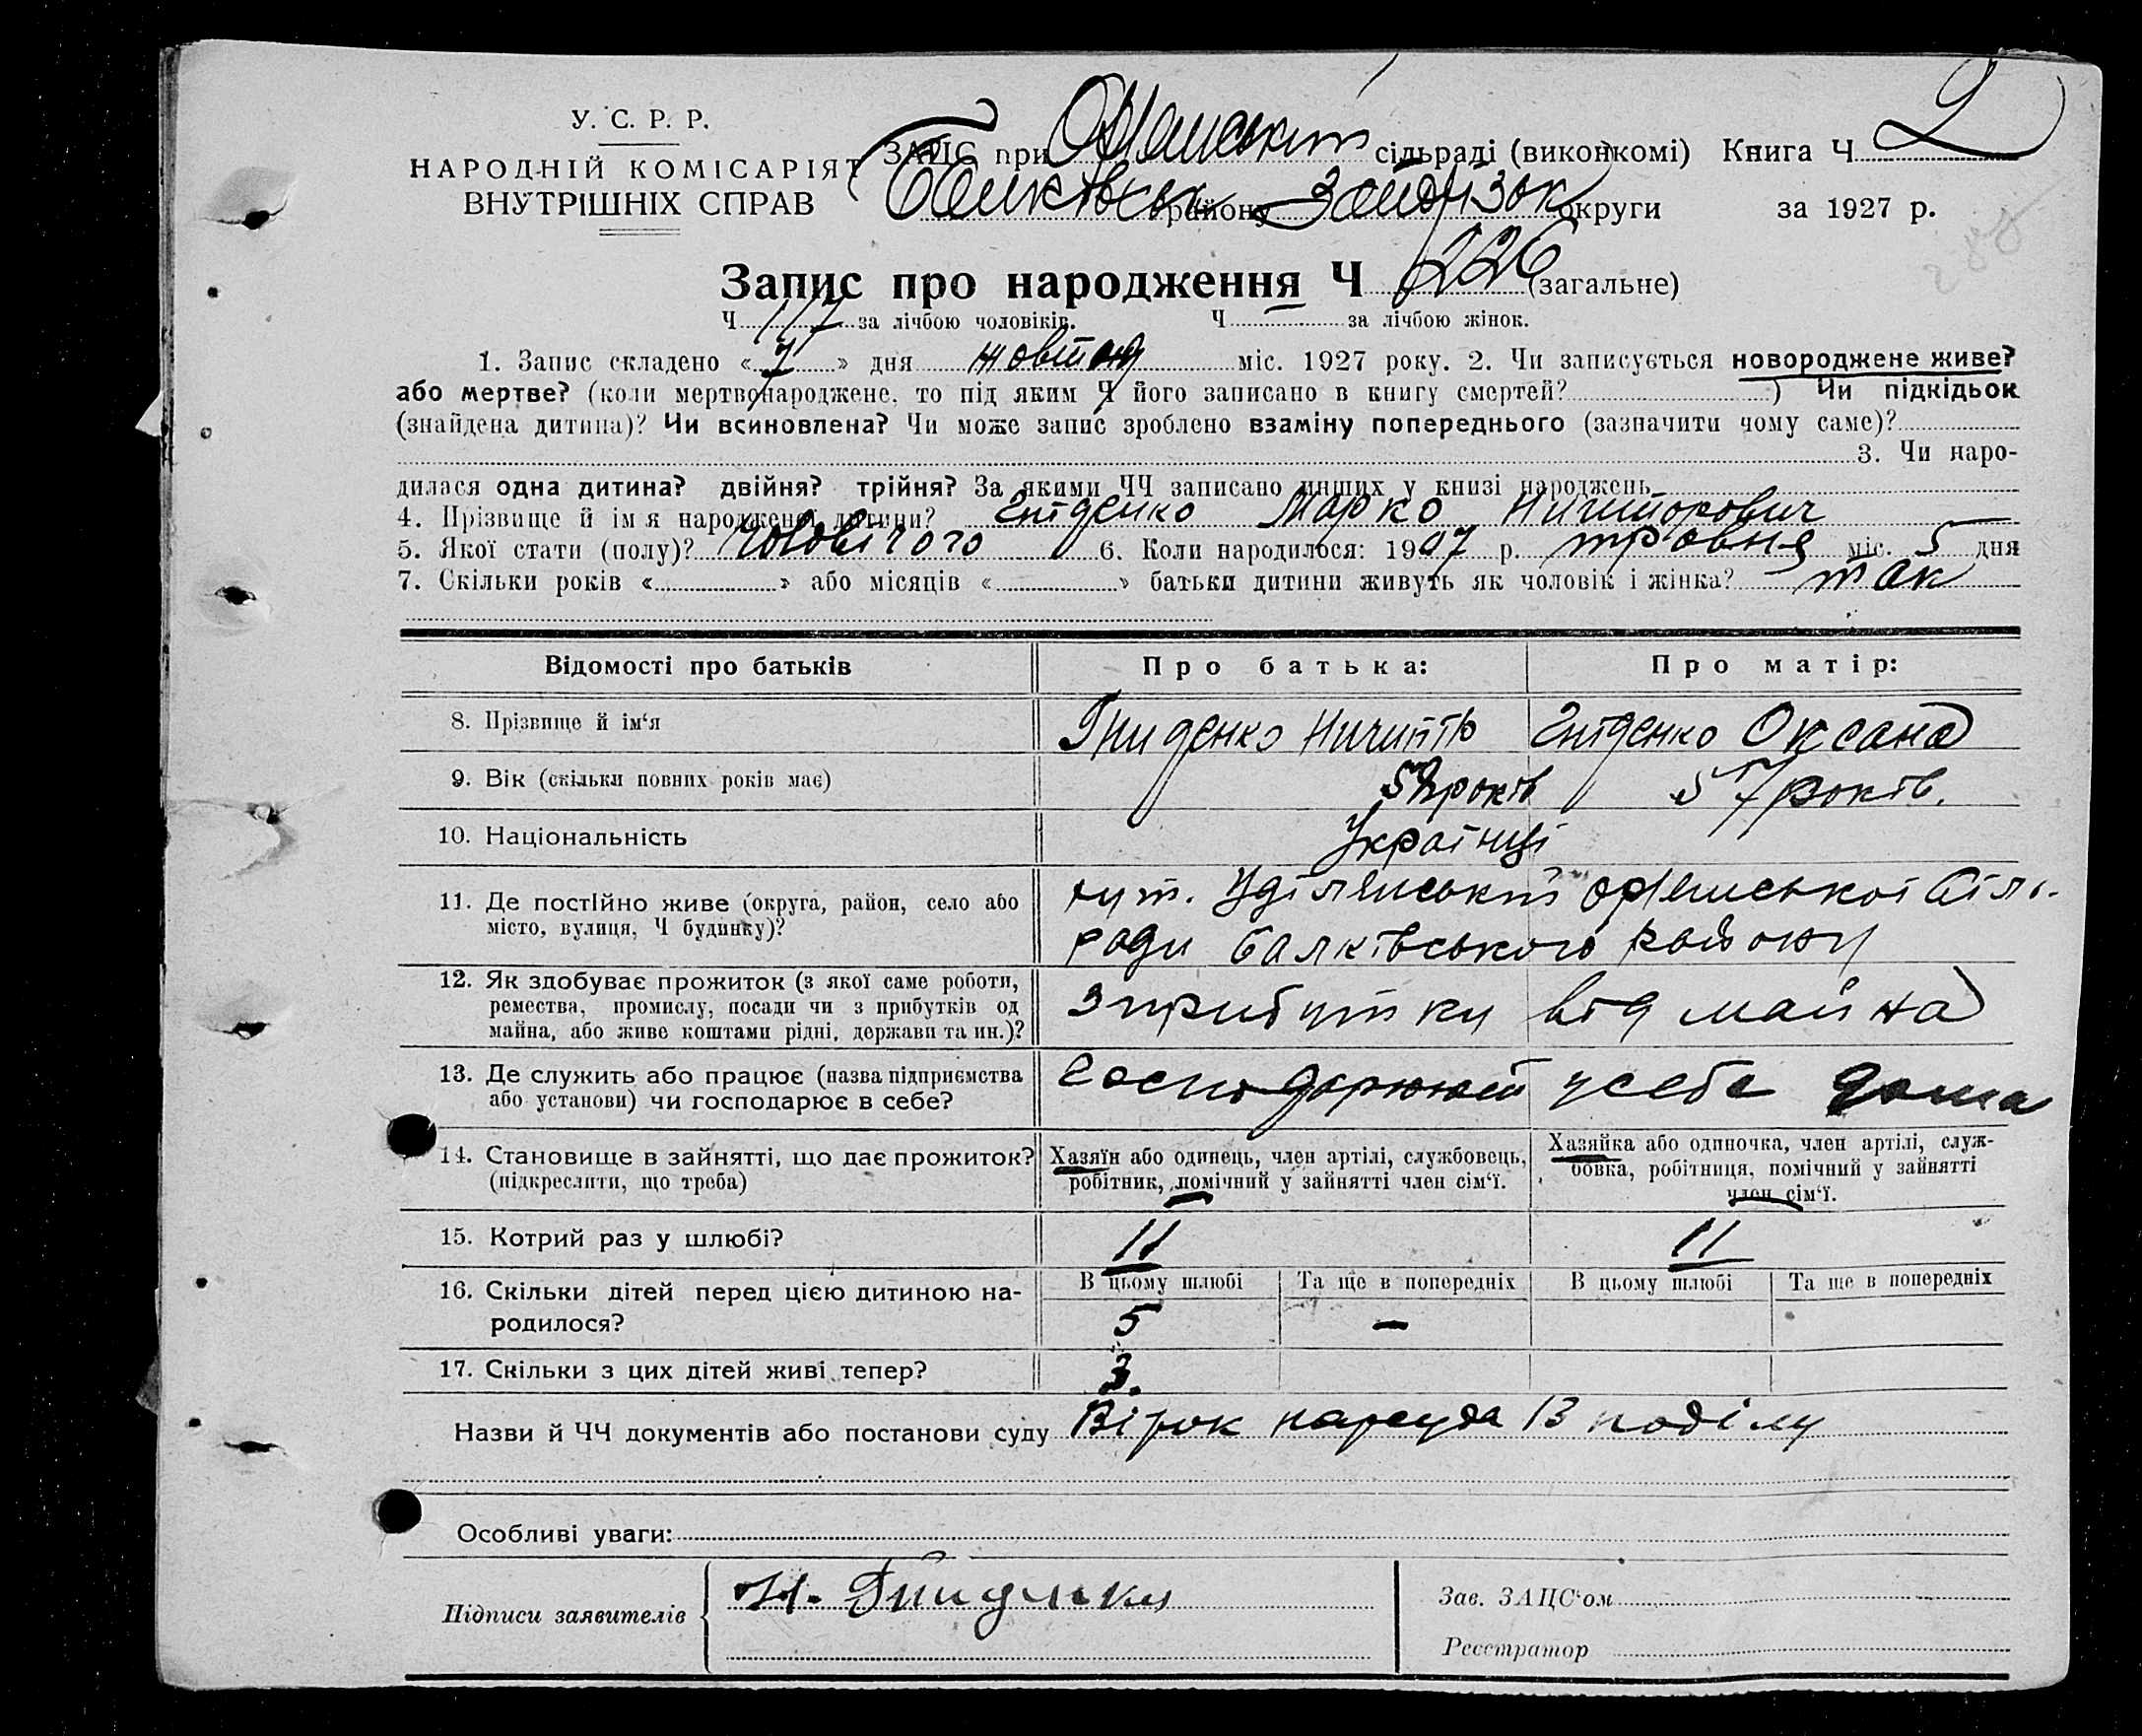 У. С. Р. Р.
НАРОДНІЙ КОМІСАРІЯТ
ВНУТРІШНІХ СПРАВ
ЗАГС при сільраді (виконкомі) Книга Ч 2
району округи за 1927 р.
Запис про народження Ч 226 (загальне)
Ч 117 за лічбою чоловіків. Ч — за лічбою жінок.
1. Запис складено «7» дня жовтня міс. 1927 року. 2. Чи записується новороджене живе?
або мертве? (коли мертвонароджене, то під яким Ч його записано в книгу смертей? ) Чи підкідьок
(знайдена дитина)? Чи всиновлена? Чи може запис зроблено взаміну попереднього (зазначити чому саме)?
3. Чи наро-
дилася одна дитина? двійня? трійня? За якими ЧЧ записано инших у книзі народжень
4. Прізвище й імя народженої дитини? Гніденко Марко Ничипорович
5. Якої стати (полу)? Чоловічого 6. Коли народилося: 1907 р. травня міс. 5 дня
7. Скільки років « » або місяців « » батьки дитини живуть як чоловік і жінка? так
Відомості про батьків Про батька: Про матір:
8. Прізвище й ім‘я Гниденко Ничипір Гніденко Оксана
9. Вік (скільки повних років має) років 57 років.
10. Національність Українці
11. Де постійно живе (округа, район, село або
місто, вулиця, Ч будинку)?
хут. сіль-
ради Балківського району
12. Як здобуває прожиток (з якої саме роботи,
ремества, промислу, посади чи з прибутків од
майна, або живе коштами рідні, держави та ин.)?
з прибутку від майна
13. Де служить або працює (назва підприємства
або установи) чи господарює в себе?
господарюют у себе дома
14. Становище в зайнятті, що дає прожиток?
(підкреслити, що треба)
Хазяїн або одинець, член артілі, службовець,
робітник, помічний у зайнятті член сім‘ї.
Хазяйка або одиночка, член артілі, служ-
бовка, робітниця, помічний у зайнятті
член сім‘ї.
15. Котрий раз у шлюбі? 11 11
16. Скільки дітей перед цією дитиною на-
родилося?
В цьому шлюбі Та ще в попередніх В цьому шлюбі Та ще в попередніх
5 —
17. Скільки з цих дітей живі тепер? 3.
Назви й ЧЧ документів або постанови суду Вірок нарсуда 13 поділу
Особливі уваги:
Підписи заявителів Н.
Зав. ЗАЦС‘ом
Реєстратор